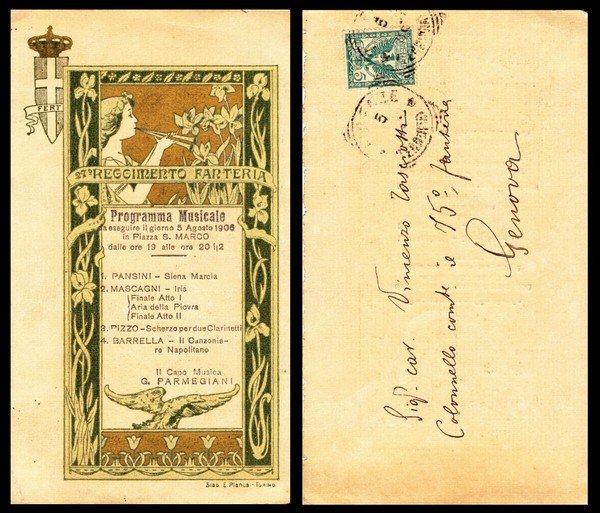 FERT
27º REGGIMENTO FANTERIA
Programma Musicale
da eseguire il giorno 5 Agosto 1906
in Piazza S. MARCO
dalle ore 19 alle ore 20 1|2
1. PANSINI - Siena Marcia
2. MASCAGNI - Iris
Finale Atto I
Aria della Piovra
Finale Atto II
3. PIZZO - Scherzo per due Clarinetti
4. BARRELLA - Il Canzonie-
re Napolitano
Il Capo Musica
G. PARMEGIANI
Stab. E. Manca - TORINO.
5
5
Sig. cav. Vincenzo
Colonnello com.te il 75º fanteria
Genova